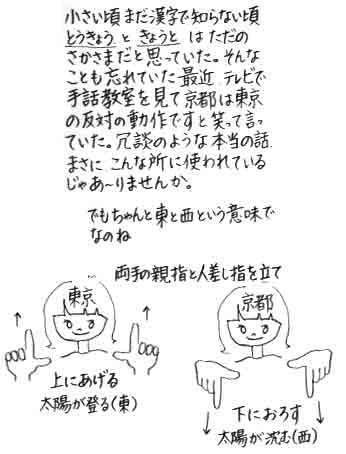 小さい頃まだ漢字で知らない頃
とうきょう と きょうと はただの
さかさまだと思っていた。そんな
ことも忘れていた最近 テレビで
手話教室を見て京都は東京
の反対の動作ですと笑って言っ
ていた。冗談のような本当の話
まさに こんな所に使われている
じゃあ〜りませんか。
でもちゃんと東と西という意味で
なのね
両手の親指と人差し指を立て
東京
京都
上にあげる
太陽が登る(東)
下におろす
太陽が沈む(西)